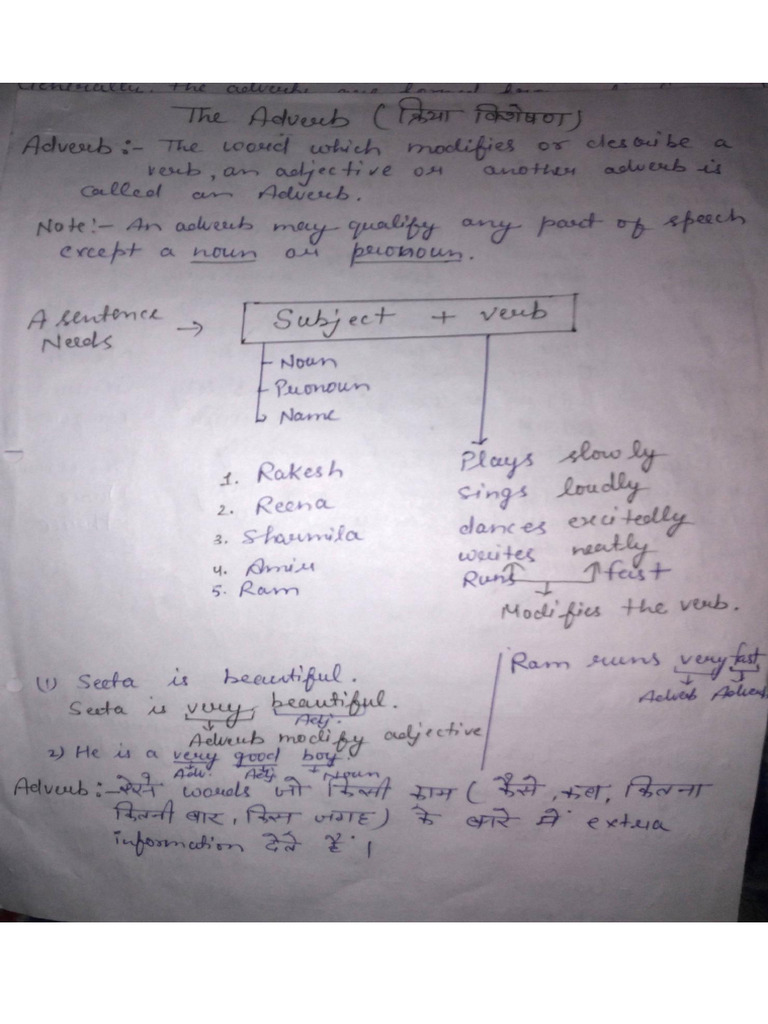 Generally, the adverbs are formed from
The Adverb (क्रिया विशेषण)
Adverb :- The word which modifies or describe a
verb, an adjective or another adverb is
called an Adverb.
Note:- An adverb may qualify any part of speech
except a noun or pronoun.
A sentence
Needs → Subject + verb
Noun
Pronoun
Name
1. Rakesh Plays slowly
2. Reena sings loudly
3. Sharmila dances excitedly
4. Amir writes neatly
5. Ram Runs fast
Modifies the verb.
(1) Seeta is beautiful.
Seeta is very beautiful.
Adj.
Adverb modify adjective
Ram runs very fast
Adverb Adverb
2) He is a very good boy.
Adv. Adj Noun
Adverb :- ऐसे words जो किसी काम (कैसे, कब, कितना
कितनी बार, किस जगह) के बारे में extra
information देते हैं।